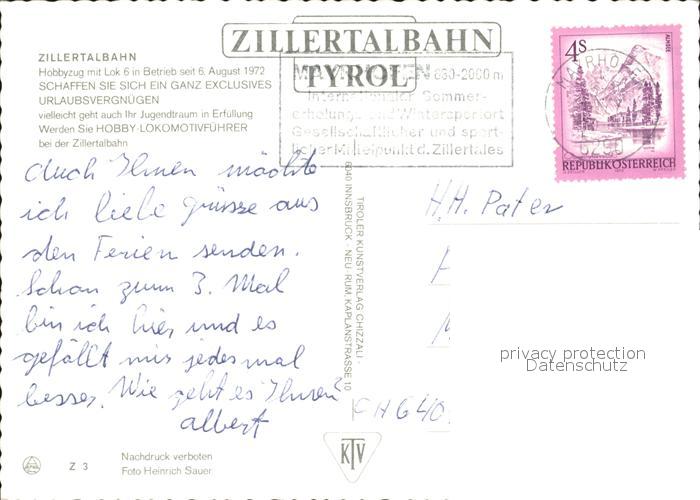 ZILLERTALBAHN
Hobbyzug mit Lok 6 in Betrieb seit 6. August 1972
SCHAFFEN SIE SICH EIN GANZ EXCLUSIVES
URLAUBSVERGNÜGEN
vielleicht geht auch Ihr Jugendtraum in Erfüllung
Werden Sie HOBBY-LOKOMOTIVFÜHRER
bei der Zillertalbahn
ZILLERTALBAHN
TYROL
MAYRHOFEN 630-2000 m
Internationaler Sommer-
erholungs- und Wintersportort
Gesellschaftlicher und sport-
licher Mittelpunkt d. Zillertales
MAYRHOFEN
6290
4S
ALMSEE
REPUBLIK ÖSTERREICH
Auch Ihnen möchte
ich liebe grüsse aus
den Ferien senden.
Schon zum 3. Mal
bin ich hier und es
gefällt mir jedesmal
besser. Wie geht es Ihnen?
Albert
TIROLER KUNSTVERLAG CHIZZALI ·
6040 INNSBRUCK · NEU-RUM, KAPLANSTRASSE 10
H.H. Pater
CH 640
privacy protection
Datenschutz
Z 3
Nachdruck verboten
Foto Heinrich Sauer
KTV